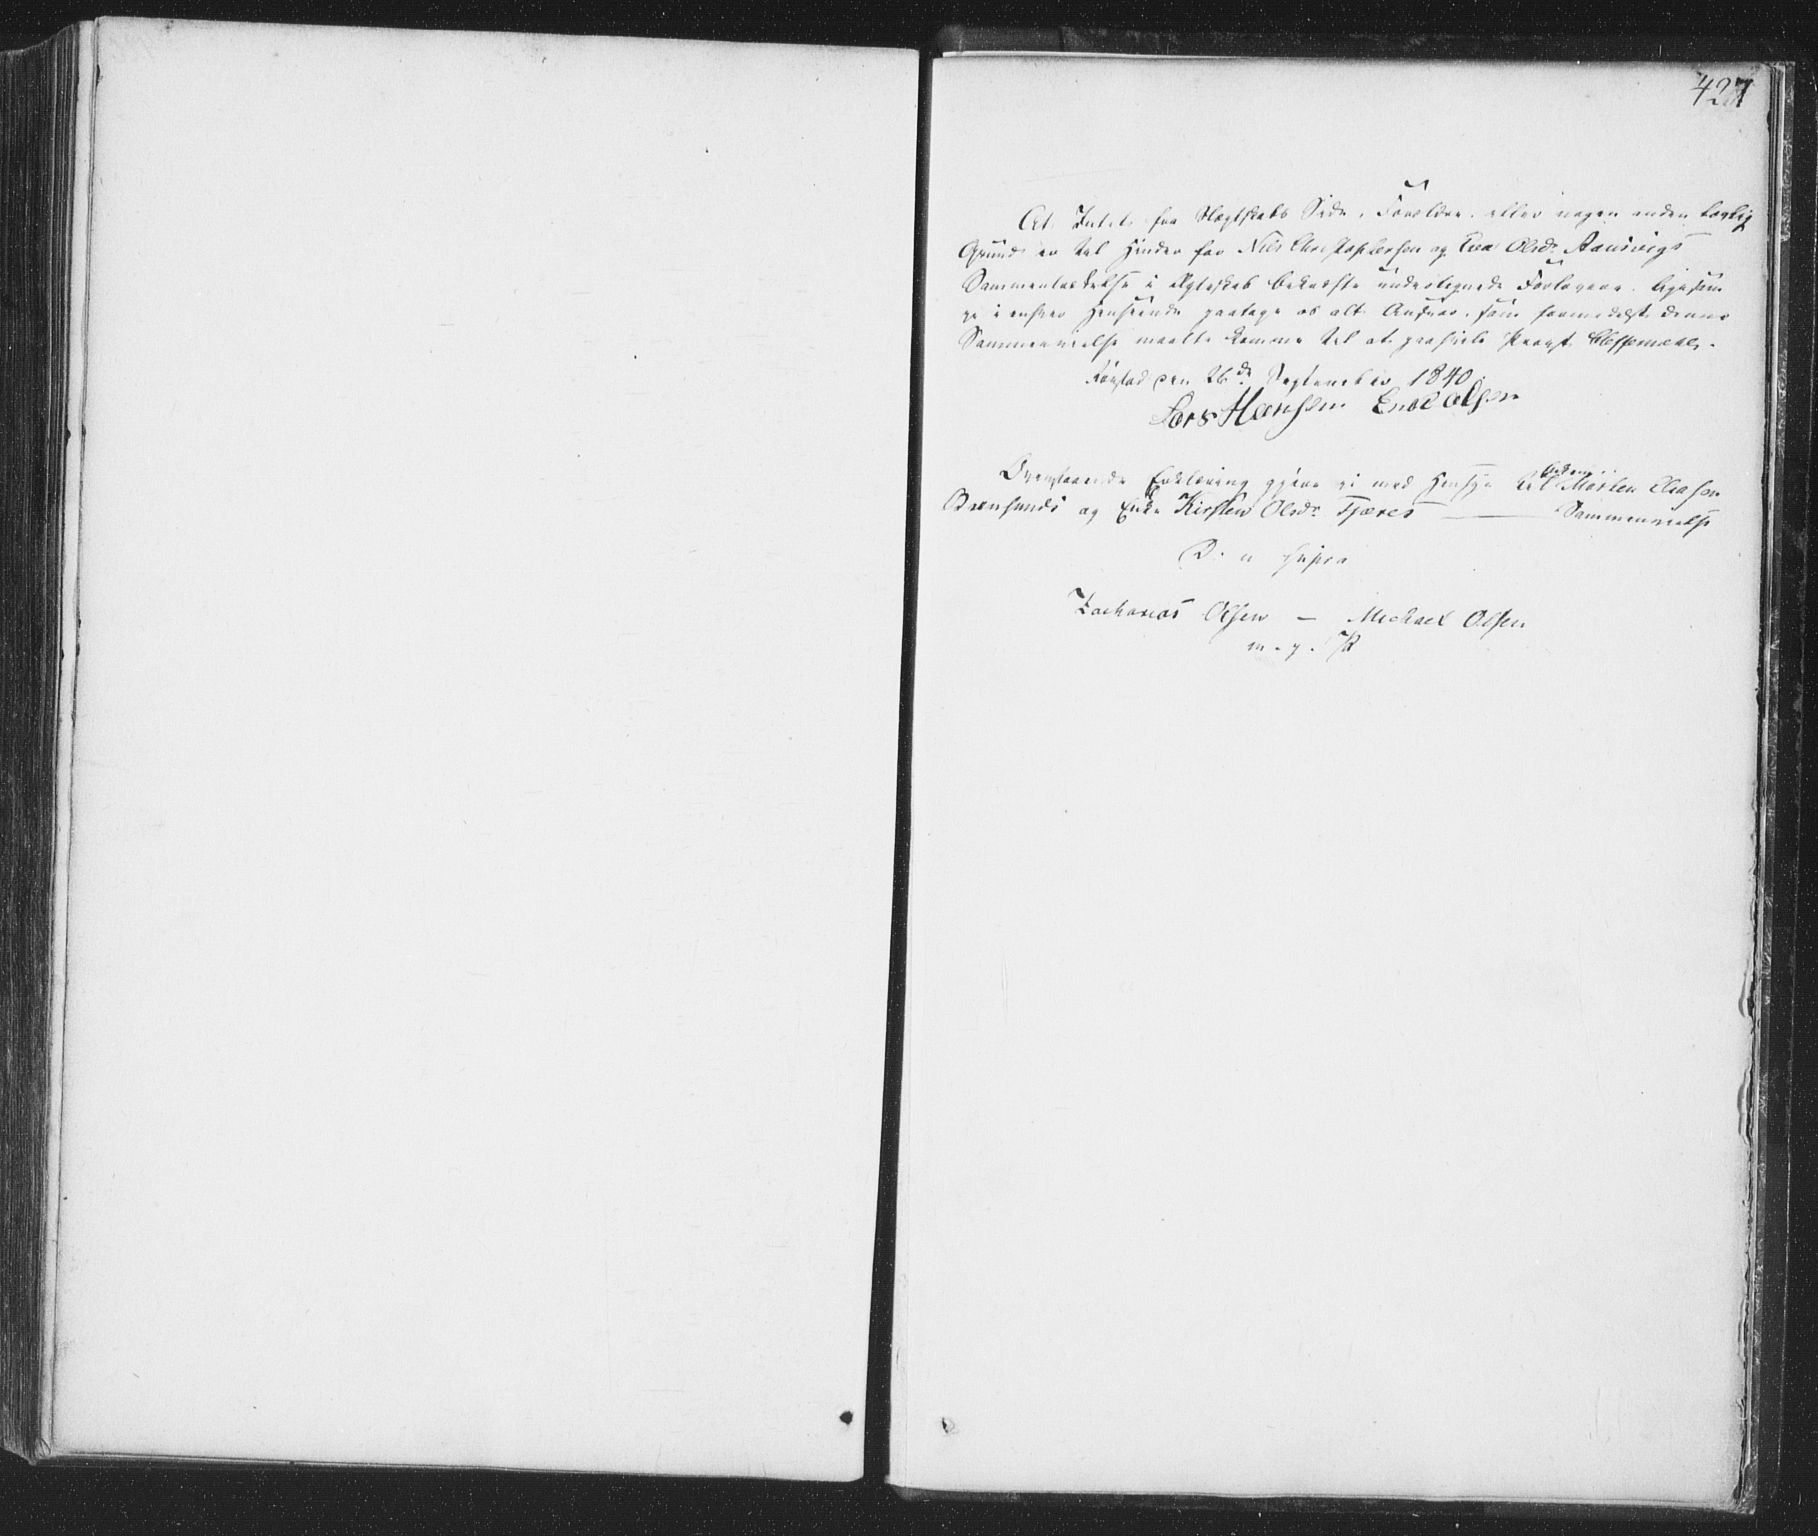 427
At Intet fra Slægtskabs Side, Forældre, eller nogen anden lovlig
Grund er til Hinder for Nils Christophersen og Eva Olsdr Aansvigs
Sammentrædelse i Ægteskab bekræfte undertegnede Forlovere, ligesom
vi i enhver Henseende paatage os alt Ansvar, som formedelst denne
Sammenvielse maatte komme til at paahvile Provst
den 26de September 1840.
Lars Hansen Enok Olsen
Ovenstaaende Erklæring gjøre vi med Hensyn til Morten Eliasen
og Enke Kirsten Olsdr Tjæres — Sammenvielse
D: u supra
Zacharias Olsen — Michael Olsen
m. p. P